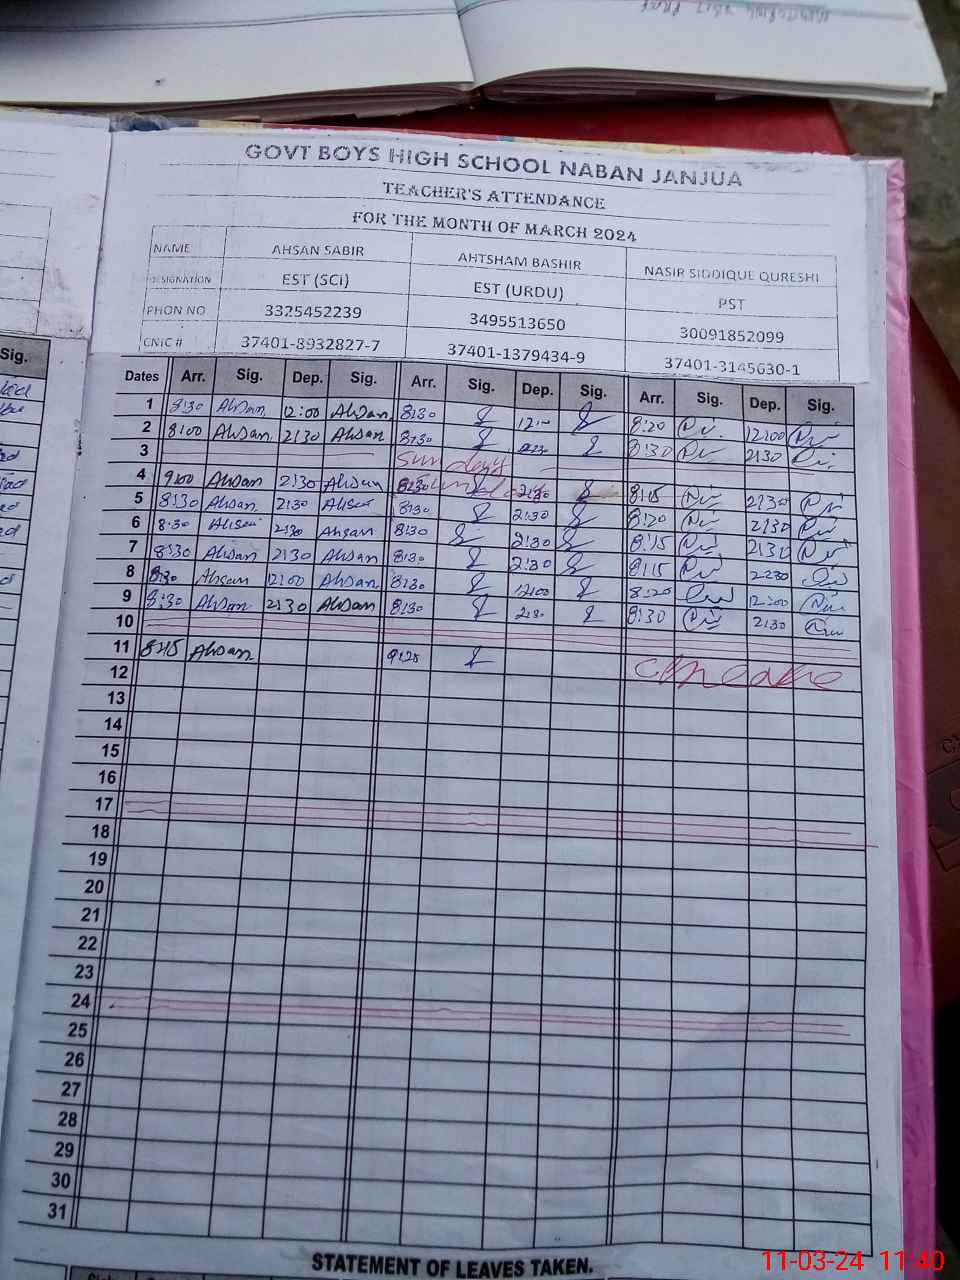 GOVT BOYS HIGH SCHOOL NABAN JANJUA
TEACHER'S ATTENDANCE
FOR THE MONTH OF MARCH 2024
NAME AHSAN SABIR AHTSHAM BASHIR NASIR SIDDIQUE QURESHI
DESIGNATION EST (SCi) EST (URDU) PST
PHON NO 3325452239 3495513650 30091852099
CNIC # 37401-8932827-7 37401-1379434-9 37401-3145630-1
Sig.
Dates Arr. Sig. Dep. Sig. Arr. Sig. Dep. Sig. Arr. Sig. Dep. Sig.
1 8:30 Ahsan 12:00 Ahsan 8:30 12:00 8:20 12:00
2 8:00 Ahsan 2:30 Ahsan 8:30 2:30 8:30 2:30
3 Sunday
4 9:00 Ahsan 2:30 Ahsan 8:30 2:30 8:15 2:30
5 8:30 Ahsan 2:30 Ahsan 8:30 2:30 8:20 2:30
6 8:30 Ahsan 2:30 Ahsan 8:30 2:30 8:15 2:30
7 8:30 Ahsan 2:30 Ahsan 8:30 2:30 8:15 2:30
8 8:30 Ahsan 12:00 Ahsan 8:30 12:00 8:20 12:00
9 8:30 Ahsan 2:30 Ahsan 8:30 2:30 8:30 2:30
10
11 8:15 Ahsan 9:20
12
13
14
15
16
17
18
19
20
21
22
23
24
25
26
27
28
29
30
31
STATEMENT OF LEAVES TAKEN.
11-03-24 11:40